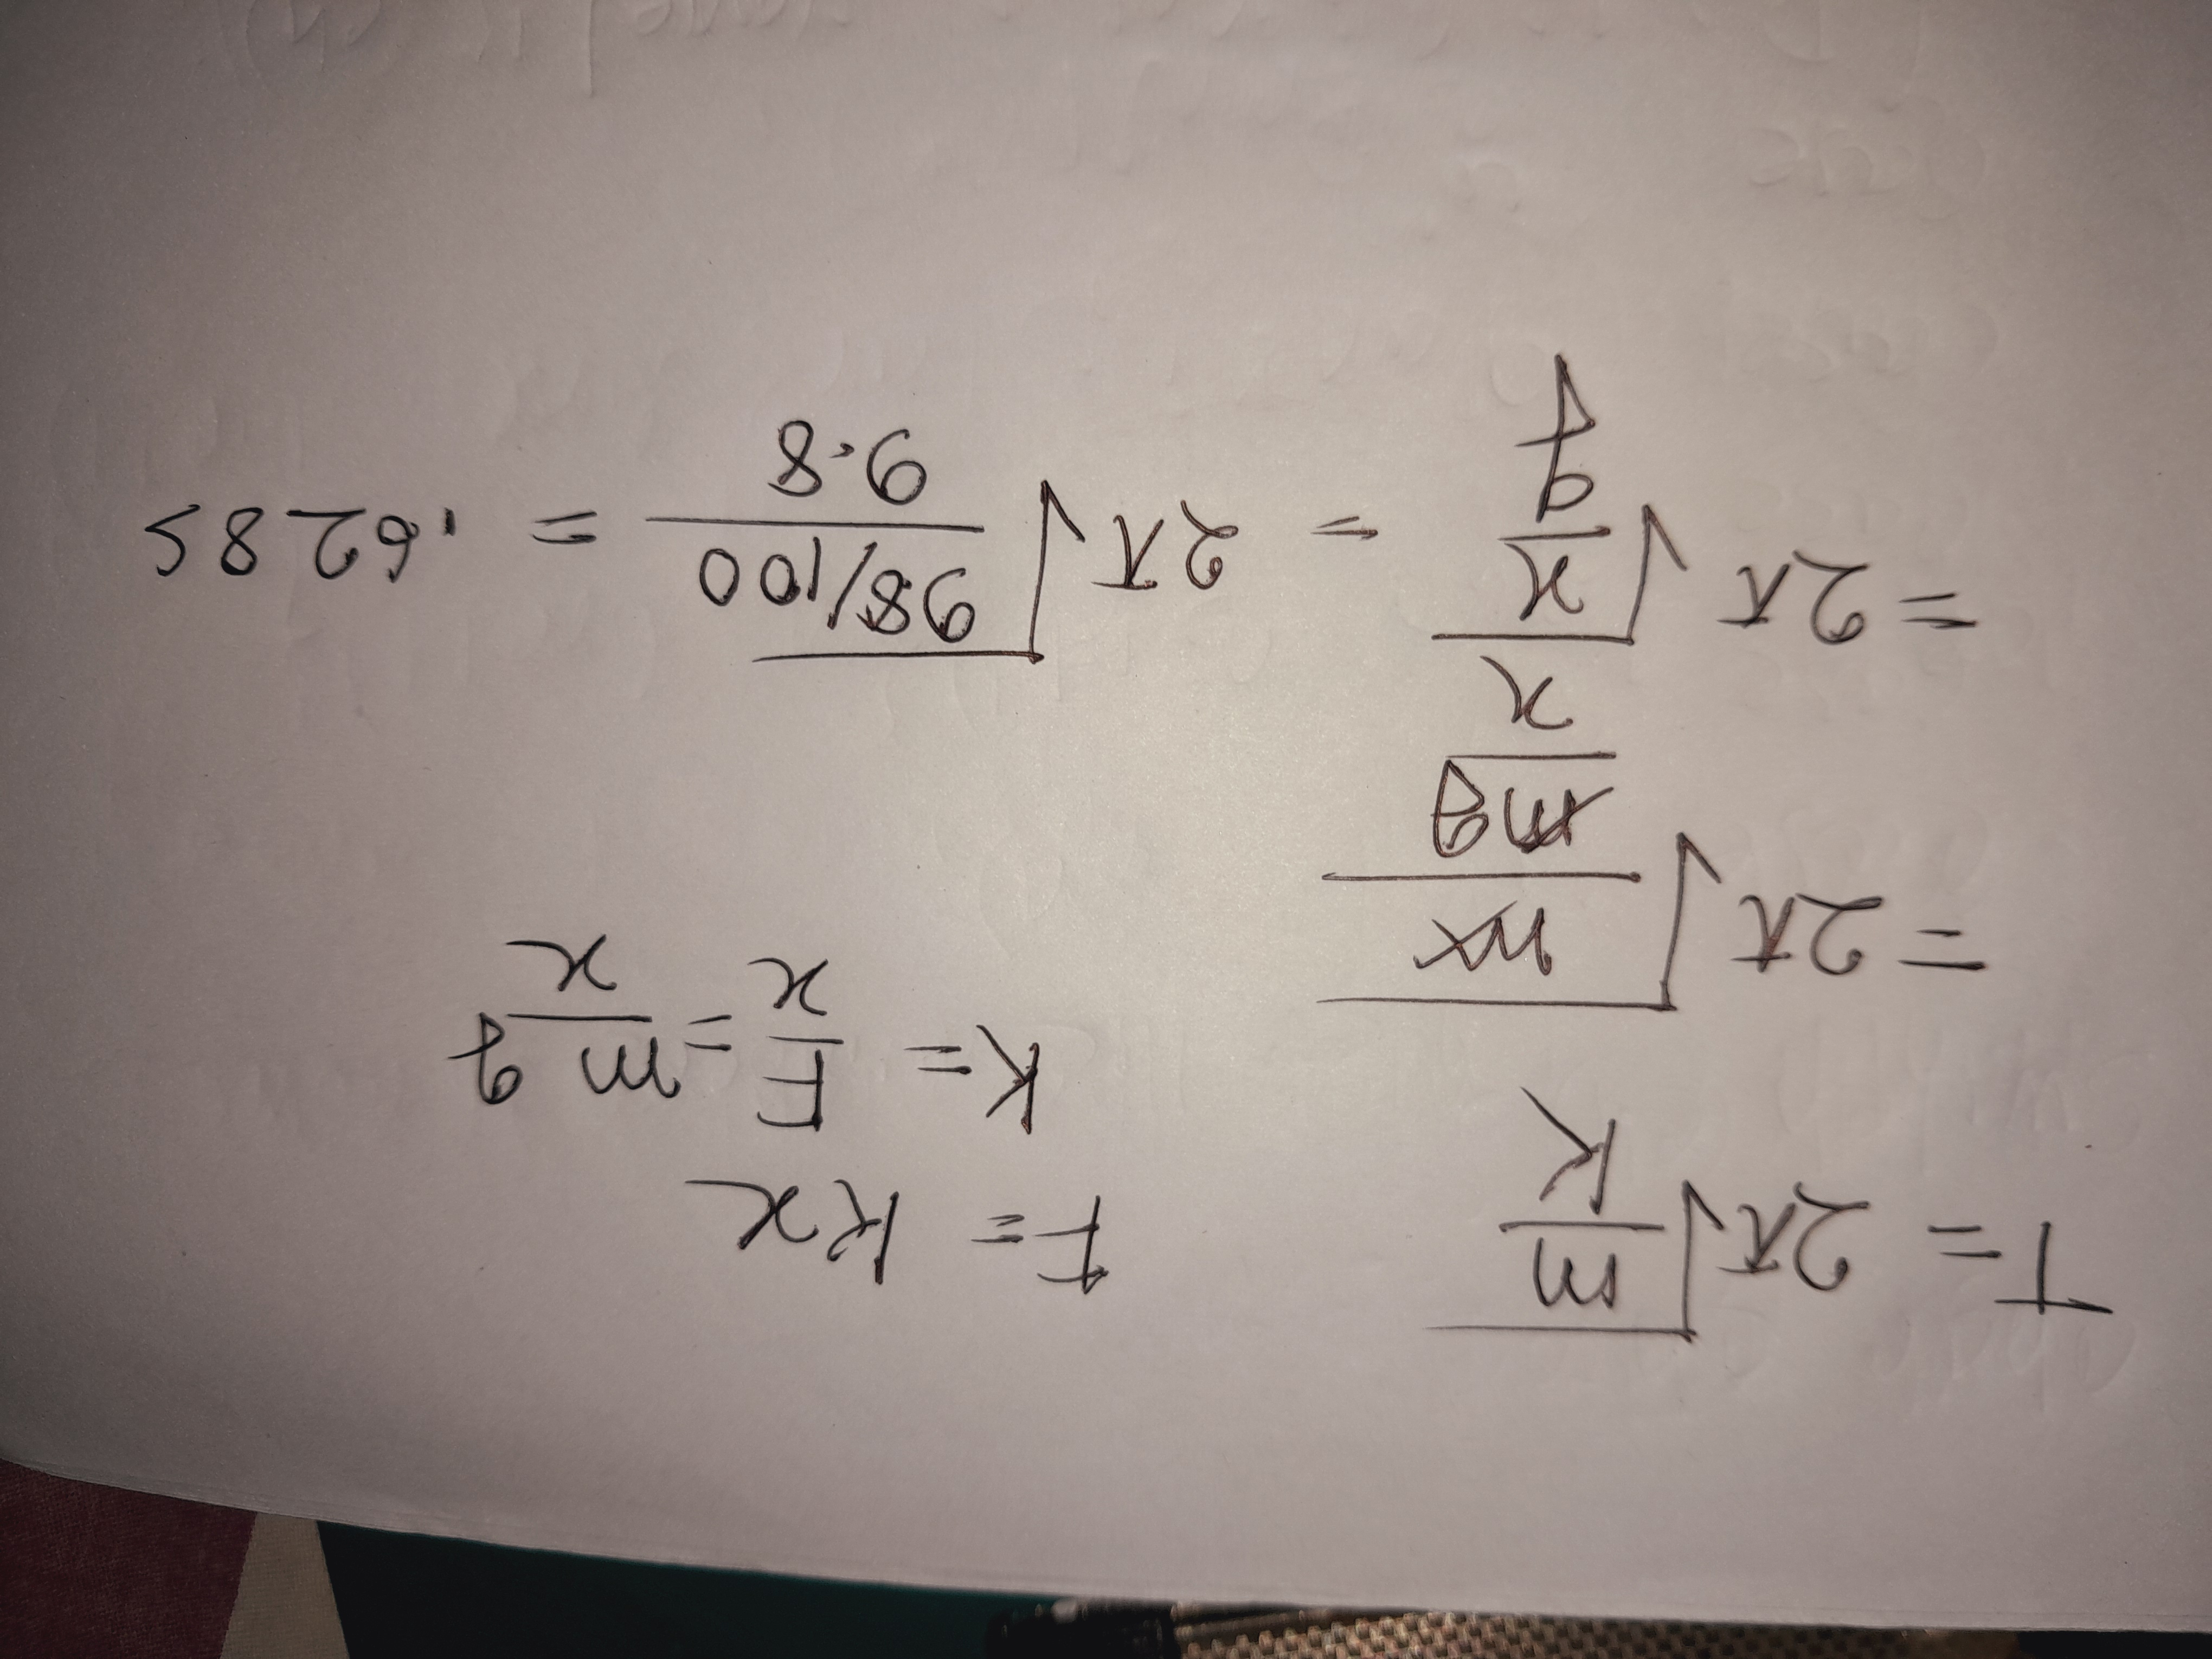 T = 2π√(m/K)    F = Kx
K = F/x = mg/x
= 2π√(m/(mg/x))
= 2π√(x/g) = 2π√((9.8/100)/9.8) = .628s